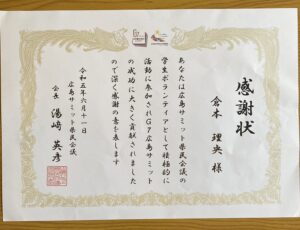 感謝状
倉本 理央 様
あなたは広島サミット県民会議の
学生ボランティアとして積極的に
活動に参加されG7広島サミット
の成功に大きく貢献されました
ので深く感謝の意を表します
令和五年六月十一日
広島サミット県民会議
会長 湯﨑 英彦